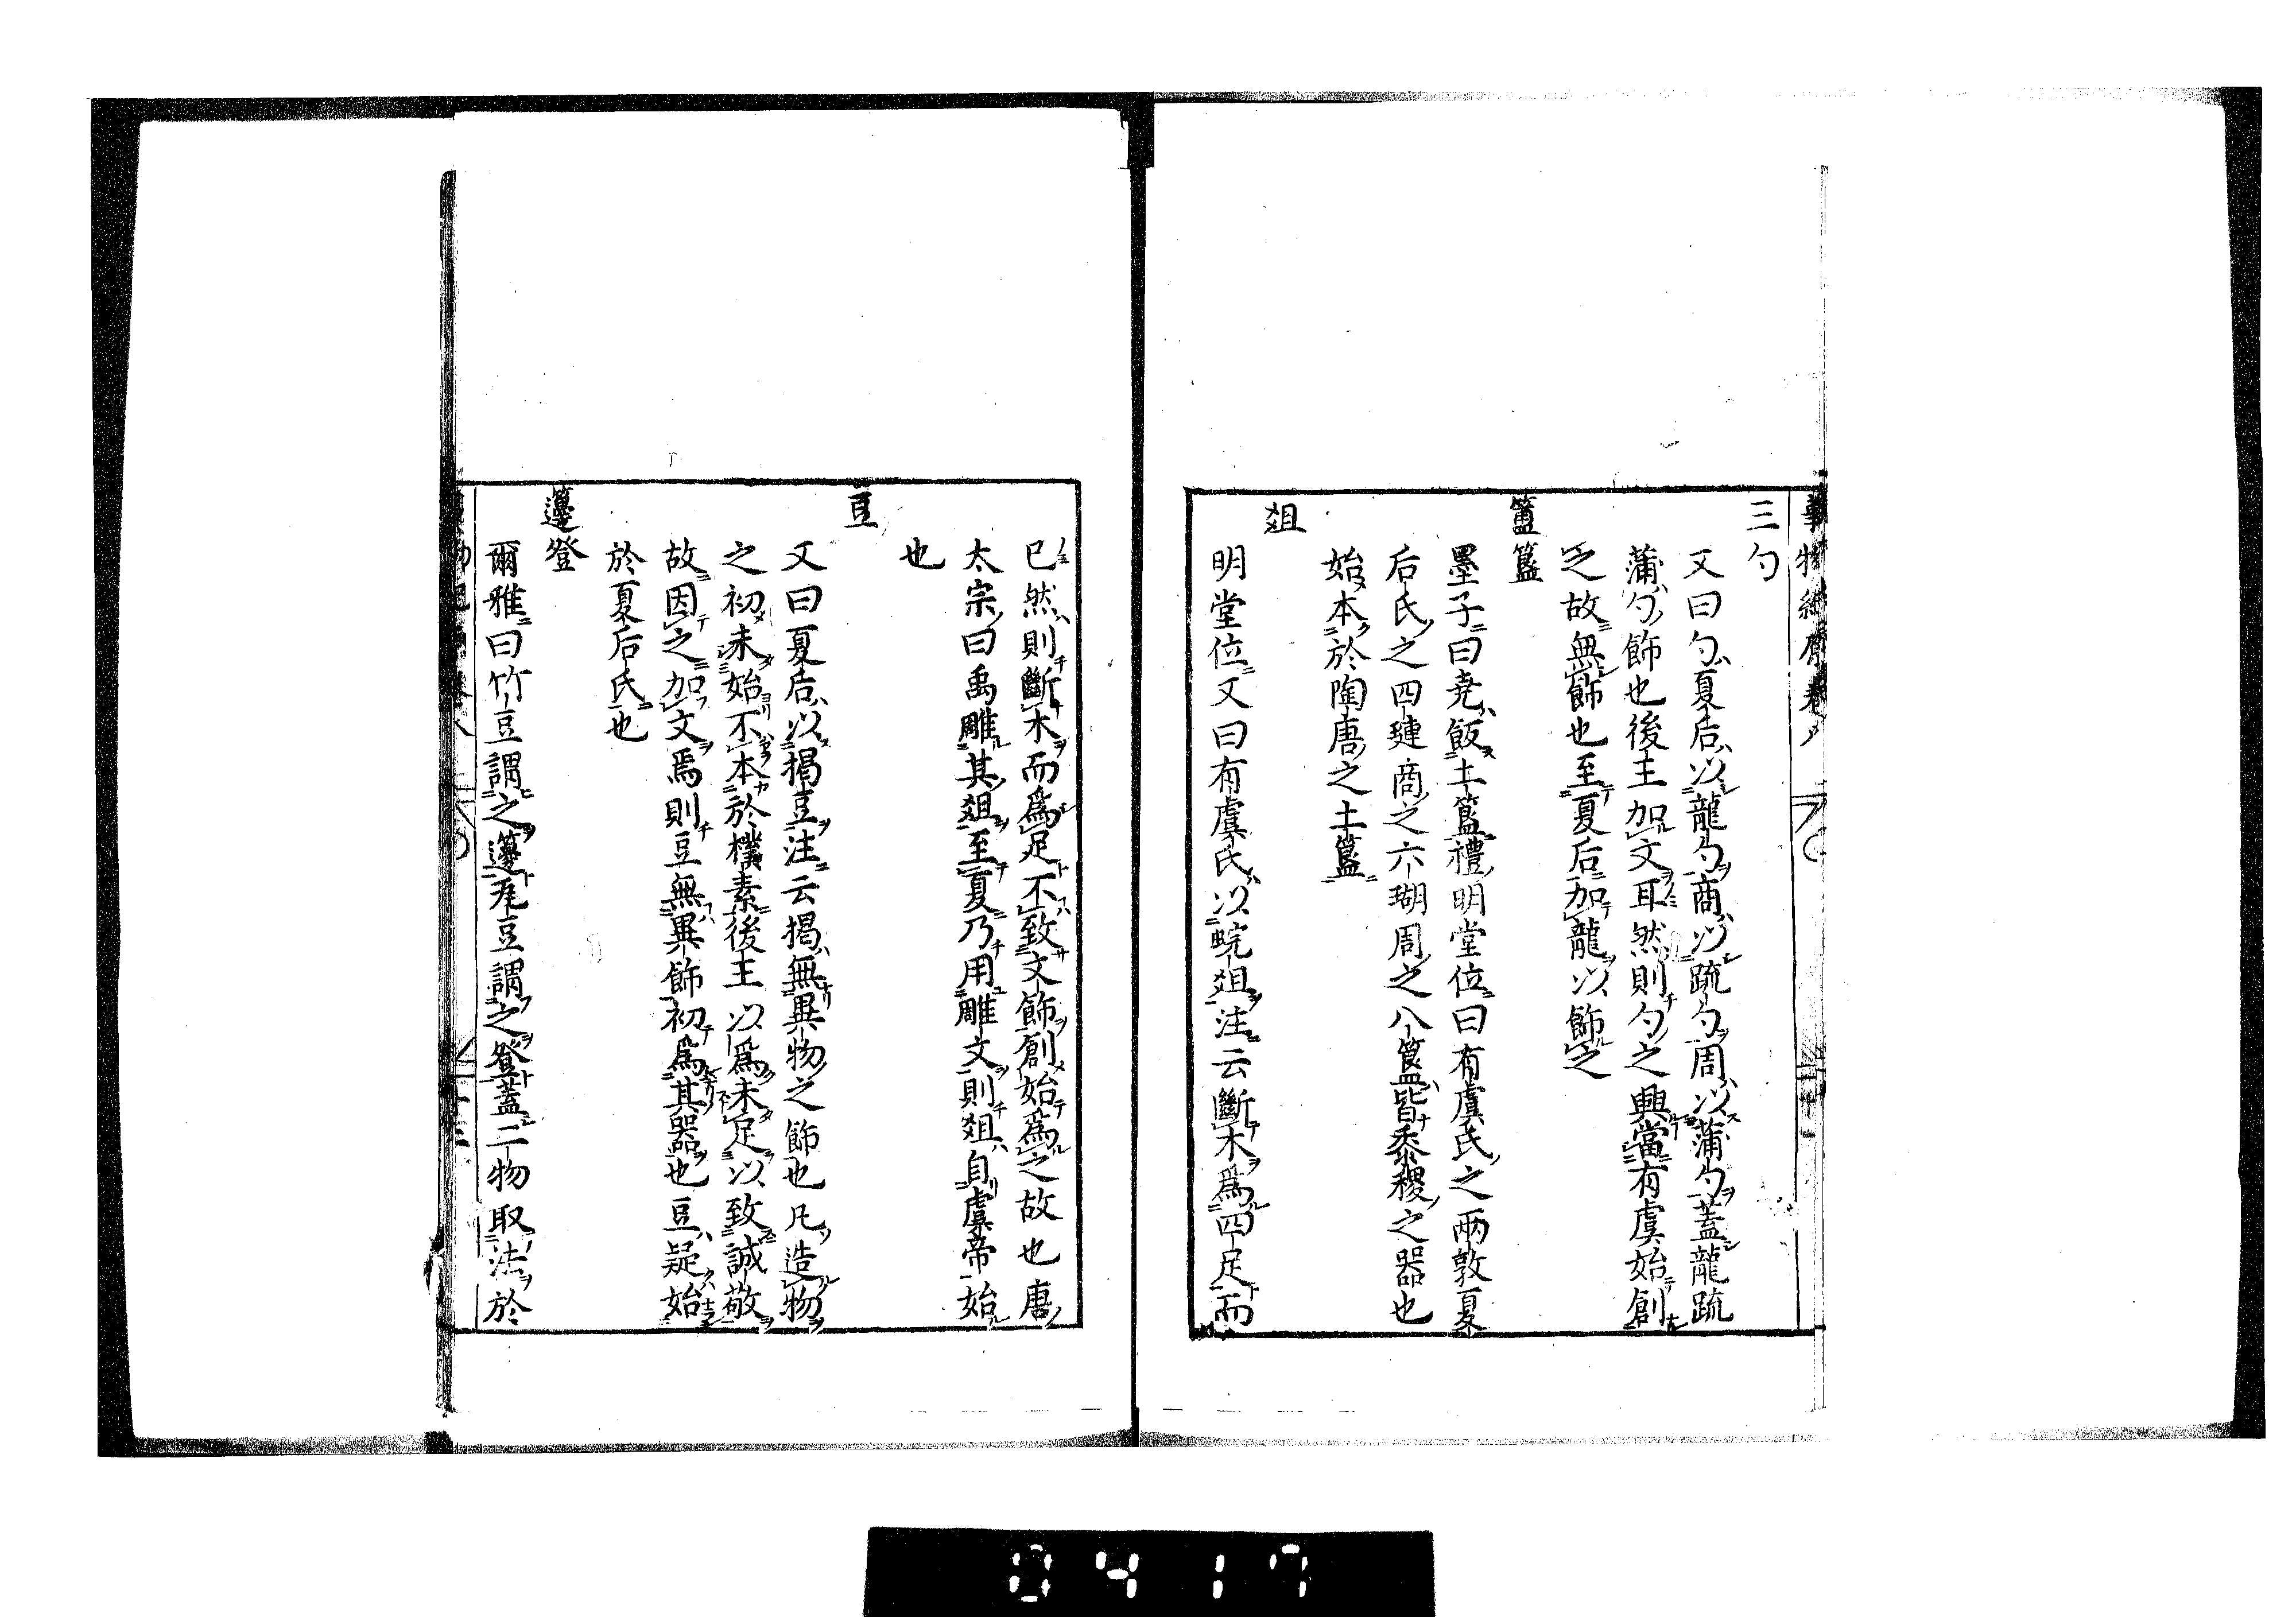 事物紀原卷八
三勺
又曰勺夏后以龍勺商以疏勺周以蒲勺蓋龍疏
蒲勺飾也後王加文耳然則勺之興當有虞始創
之故無飾也至夏后加龍以飾之
簠簋
墨子曰堯飯土簋禮明堂位曰有虞氏之兩敦夏
后氏之四璉商之六瑚周之八簋皆黍稷之器也
始本於陶唐之土簋
俎
明堂位又曰有虞氏以梡俎注云斷木爲四足而
已然則斷木而爲足不致文飾創始爲之故也唐
太宗曰禹雕其俎至夏乃用雕文則俎自虞帝始
也
豆
又曰夏后以揭豆注云揭無異物之飾也凡造物
之初未始不本於樸素後王以爲未足以致誠敬
故因之加文焉則豆無異飾初爲其器也豆疑始
於夏后氏也
籩登
爾雅曰竹豆謂之籩瓦豆謂之登蓋二物取法於
0417